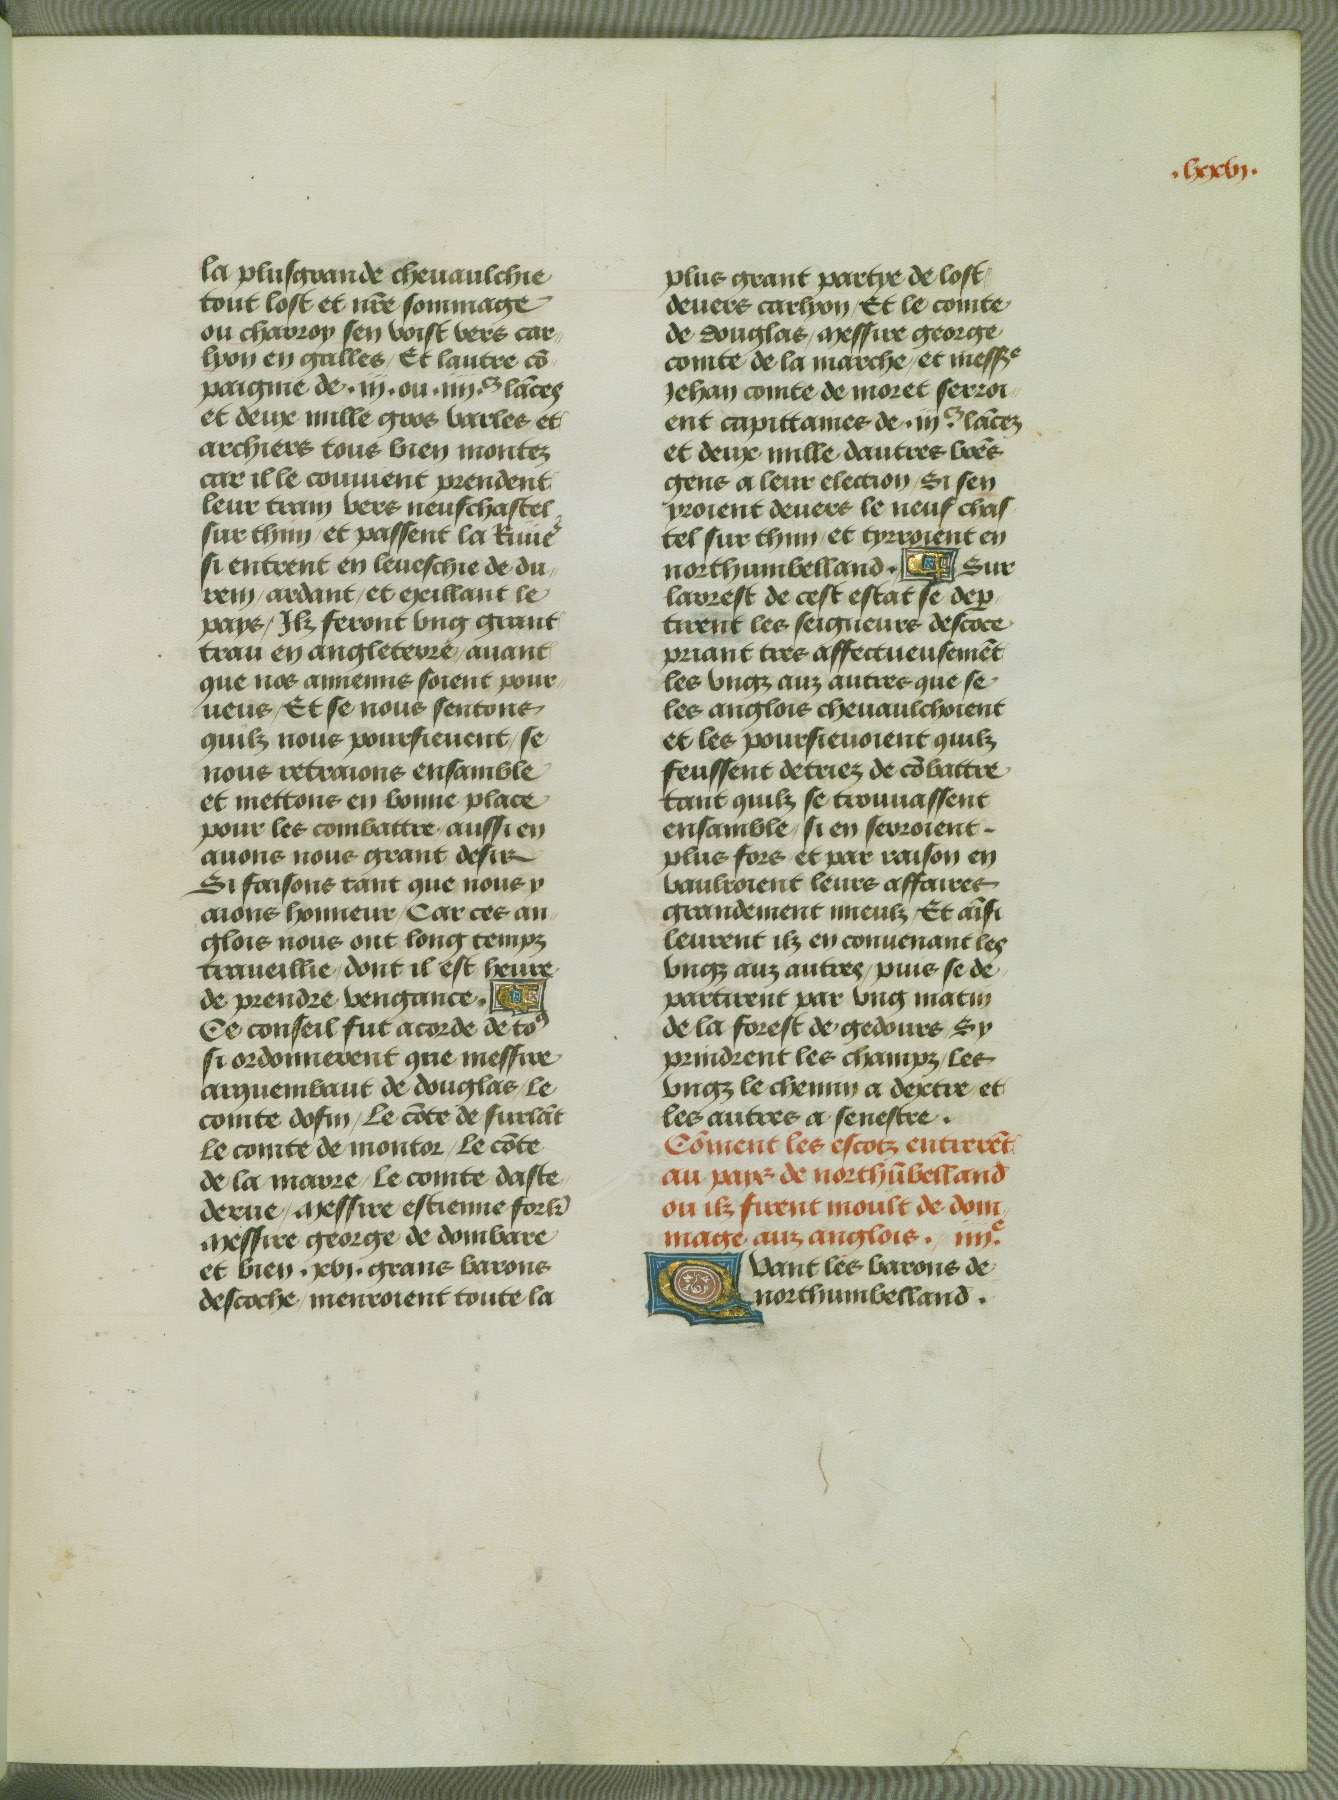 .lxxvj.
la plusgrande cheuaulchie
tout lost et nr̃e sommage
ou charroy sen voist vers car-
lyon en galles / Et lautre cõ
paignie de .iij. ou .iiij.C lãces
et deux mille gros varles et
archiers tous bien montez
car il le couuient prendent
leur train vers neufchastel
sur thin / et passent la Riuiẽ
si entrent en leueschie de du-
rem / ardant / et exillant le
pays / Ilz feront vng grant
trau en angleterre / auant
que nos annemis soient pour-
ueus / Et se nous sentons
quilz nous poursieuent / se
nous retraions ensamble
et mettons en bonne place
pour les combattre / aussi en
auons nous grant desir
Si faisons tant que nous y
aions honneur / Car ces an-
glois nous ont long tempz
traueillie / dont il est heure
de prendre vengance.
Ce conseil fut acorde de to9
si ordonnerent que messire
arquembaut de douglas / le
comte dofin / Le cõte de surlãt
Le comte de montor / Le cõte
de la mare / Le comte daste
derue / Messire estienne
Messire george de dombare
et bien .xvj. grans barons
descoche / menroient toute la
plus grant partye de lost
deuers carlyon / Et le comte
de Douglas / Messire george
comte de la marche / et messe
Jehan comte de moret serroi-
ent capittaines de .iijC. lãcez
et deux mille dautres bões
gens a leur election / Si sen
yroient deuers le neuf chas
tel sur thin / et tyrroient en
northumbelland. Sur
larest de cest estat se dep
tirent les seigneurs descoce
priant tres affectueusemẽt
les vngz auz autres que se
les anglois cheuaulchoient
et les poursieuoient quilz
feussent detriez de cõbattre
tant quilz se trouuassent
ensamble / si en serroient -
plus fors et par raison en
vaulroient leurs affaires
grandement mieulz / Et aĩsi
leurent ilz en conuenant les
vngz auz autres / puis se de
partirent par vng matin
de la forest de gedours / Sy
prindrent les champz / Les
vngz le chemin a dextre et
les autres a senestre.
Cõment les escotz entrerẽt
au pays de northũbelland
ou ilz firent moult de dom-
mage auz anglois. iiij.e
Quant les barons de
northumbelland.